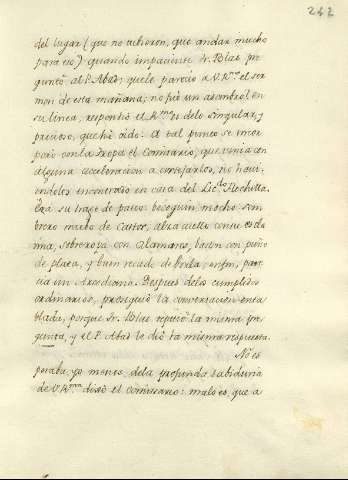 242
del lugar (que no tuvieron, que andar mucho
para eso) quando impaciente Fr. Blas pre
guntó al P. Abad: que le pareció a V. Rma. el ser
mon de esta mañana; no fue un asombro? en
su linea, respondió el Rmo. es de lo singular, y
precioso, que hè oido. A tal punto se incor
porò con la tropa el Comisario, que venia con
alguna aceleracion a cortejarlos, no havi-
endoles encontrado en casa del Licdo. Flechilla.
Era su trage de paseo: becoquin, mocho som
brero de Castor, alzacuello con su esclo
ma, sobreropa con Alamares, baston con puño
de plata, y buen recado de borla; en fin, pare
cia un Arcediano. Despues de los cumplidos
ordinarios, prosiguiò la conversacion enta
blada, porque Fr. Blas repitiò la misma pre
gunta, y el P. Abad le diò la misma respuesta.
No es
peraba yo menos de la profunda sabiduria
de V. Rma. dixo el Comisario: malo es, que a